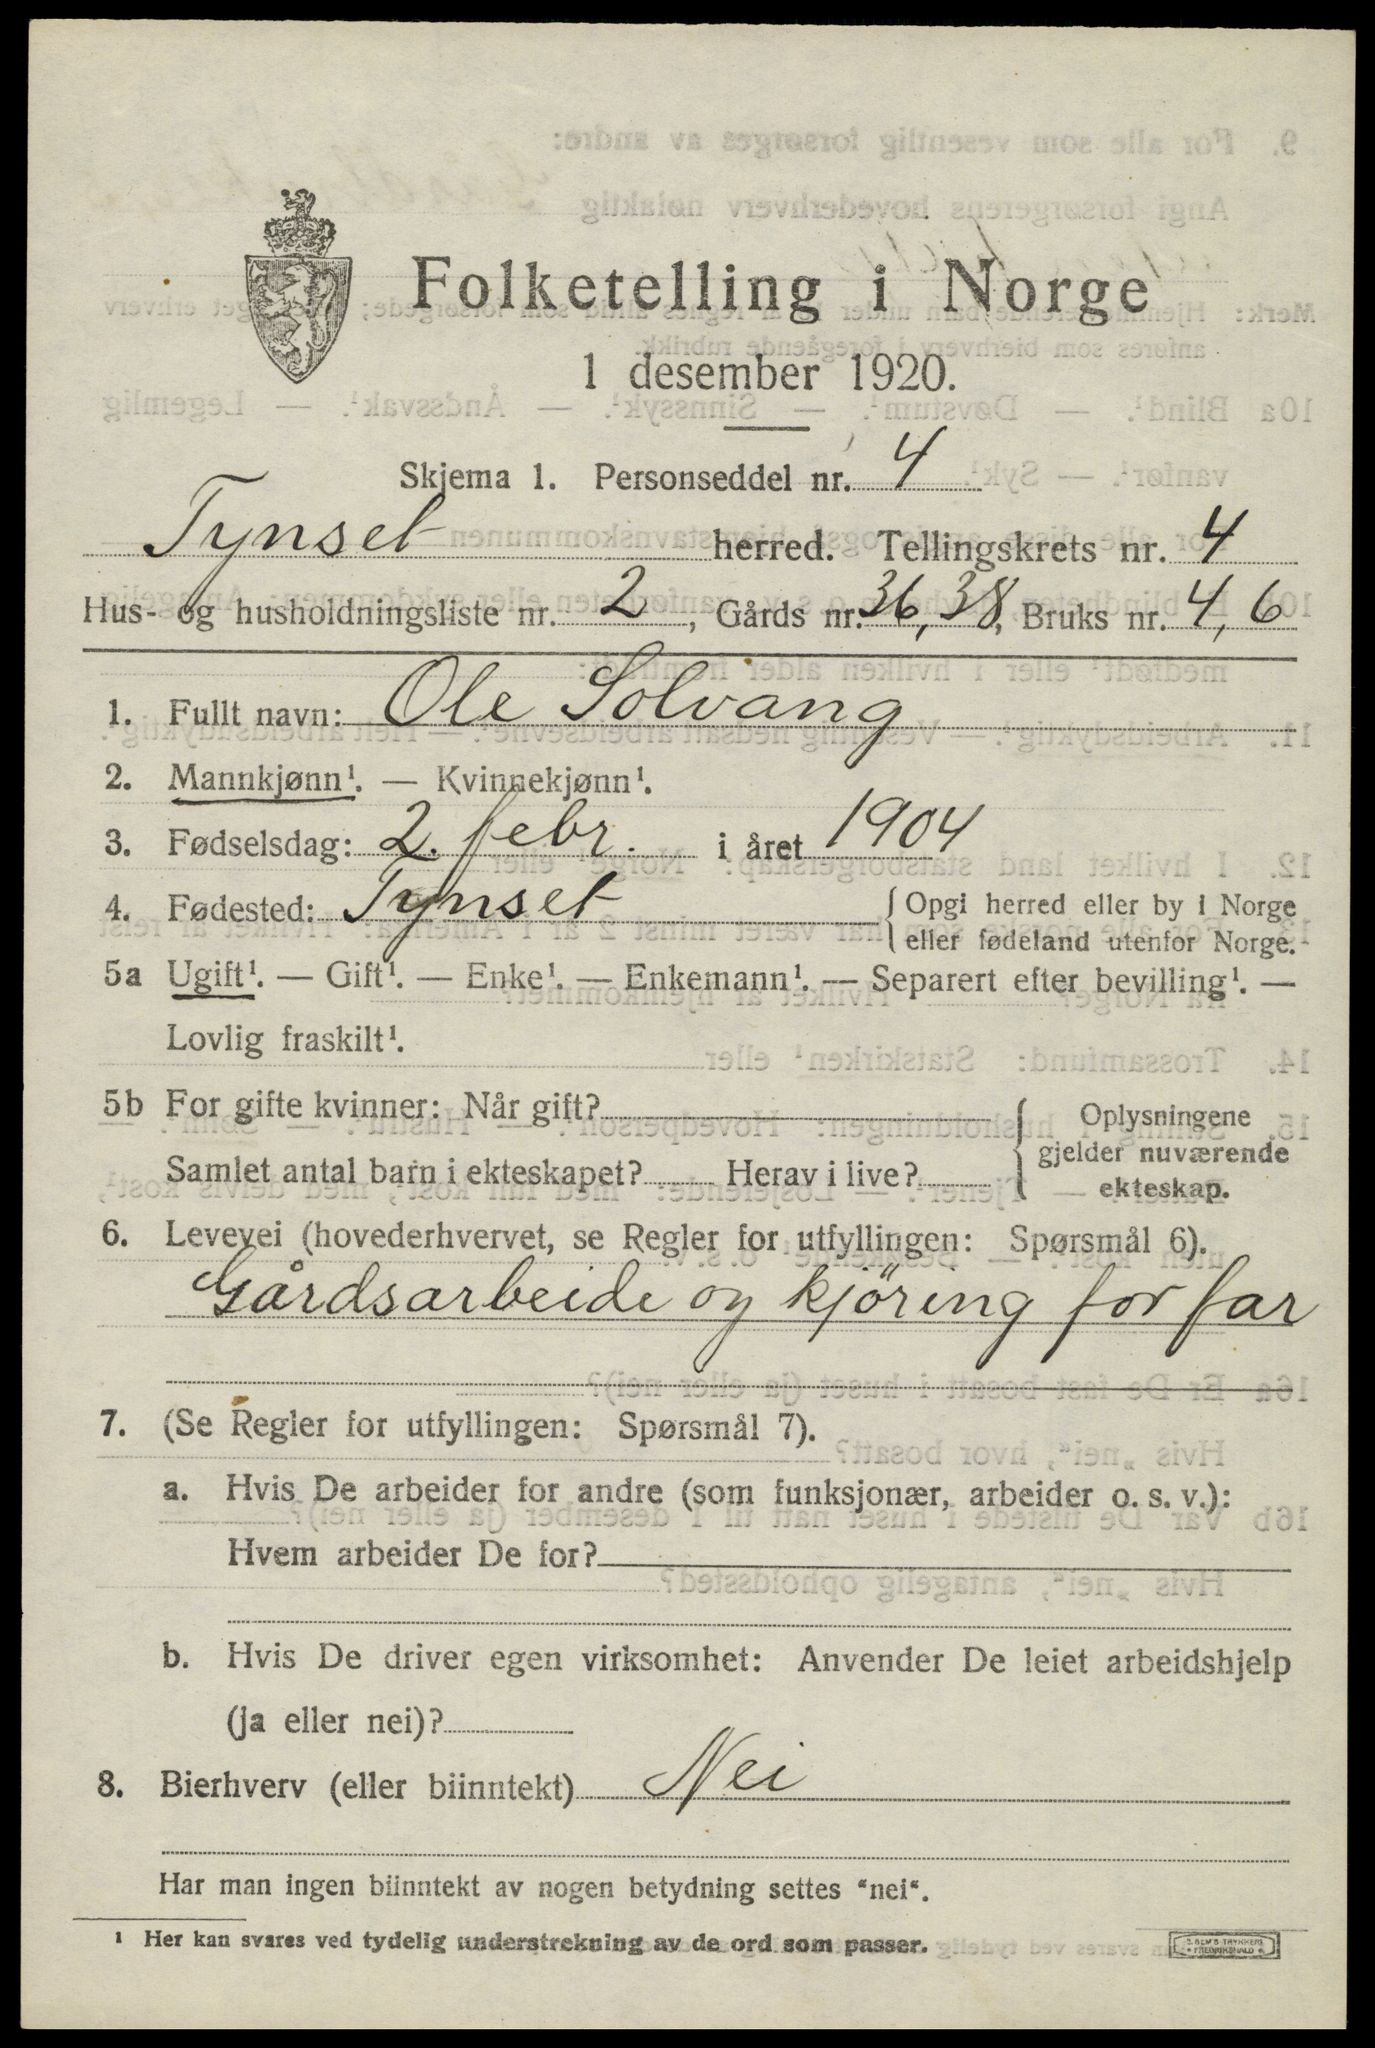 Folketelling i Norge
1 desember 1920.
Skjema 1. Personseddel nr. 4
Tynset herred. Tellingskrets nr. 4
Hus- og husholdningsliste nr. 2, Gårds nr. 36, 38, Bruks nr. 4, 6
1. Fullt navn: Ole Solvang
2. Mannkjønn¹. — Kvinnekjønn¹.
3. Fødselsdag: 2. febr. i året 1904
4. Fødested: Tynset { Opgi herred eller by i Norge
eller fødeland utenfor Norge.
5a Ugift¹. — Gift¹. — Enke¹. — Enkemann¹. — Separert efter bevilling¹. —
Lovlig fraskilt¹.
5b For gifte kvinner: Når gift?
Samlet antal barn i ekteskapet? Herav i live?
Oplysningene
gjelder nuværende
ekteskap.
6. Levevei (hovederhvervet, se Regler for utfyllingen: Spørsmål 6).
Gårdsarbeide og kjöring for far
7. (Se Regler for utfyllingen: Spørsmål 7).
a. Hvis De arbeider for andre (som funksjonær, arbeider o. s. v.):
Hvem arbeider De for?
b. Hvis De driver egen virksomhet: Anvender De leiet arbeidshjelp
(ja eller nei)?
8. Bierhverv (eller biinntekt) Nei
Har man ingen biinntekt av nogen betydning settes "nei".
¹ Her kan svares ved tydelig understrekning av de ord som passer.